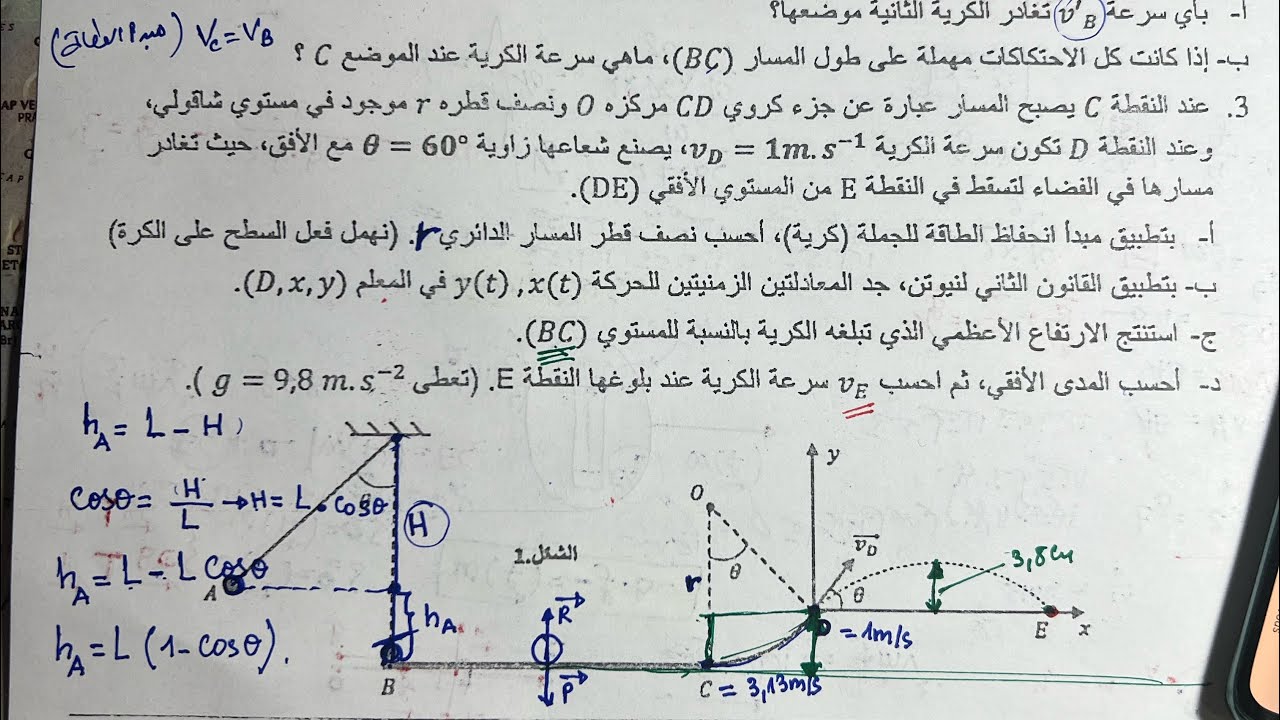 أ- بأي سرعة v'_B تغادر الكرية الثانية موضعها؟
V_C = V_B
ب- إذا كانت كل الاحتكاكات مهملة على طول المسار (BC)، ماهي سرعة الكرية عند الموضع C ؟
3. عند النقطة C يصبح المسار عبارة عن جزء كروي CD مركزه O ونصف قطره r موجود في مستوي شاقولي،
وعند النقطة D تكون سرعة الكرية v_D = 1m.s⁻¹، يصنع شعاعها زاوية θ = 60° مع الأفق، حيث تغادر
مسارها في الفضاء لتسقط في النقطة E من المستوي الأفقي (DE).
أ- بتطبيق مبدأ انحفاظ الطاقة للجملة (كرية)، أحسب نصف قطر المسار الدائري r. (نهمل فعل السطح على الكرة)
ب- بتطبيق القانون الثاني لنيوتن، جد المعادلتين الزمنيتين للحركة x(t) , y(t) في المعلم (D, x, y).
ج- استنتج الارتفاع الأعظمي الذي تبلغه الكرية بالنسبة للمستوي (BC).
د- أحسب المدى الأفقي، ثم احسب v_E سرعة الكرية عند بلوغها النقطة E. (تعطى g = 9,8 m.s⁻² ).
h_A = L - H
cosθ = H/L → H = L . cosθ
h_A = L - L cosθ
h_A = L (1 - cosθ).
H
A
h_A
B
الشكل.1
R
P
O
θ
r
C = 3,13m/s
y
v_D
θ
D = 1m/s
3,8cm
E
x